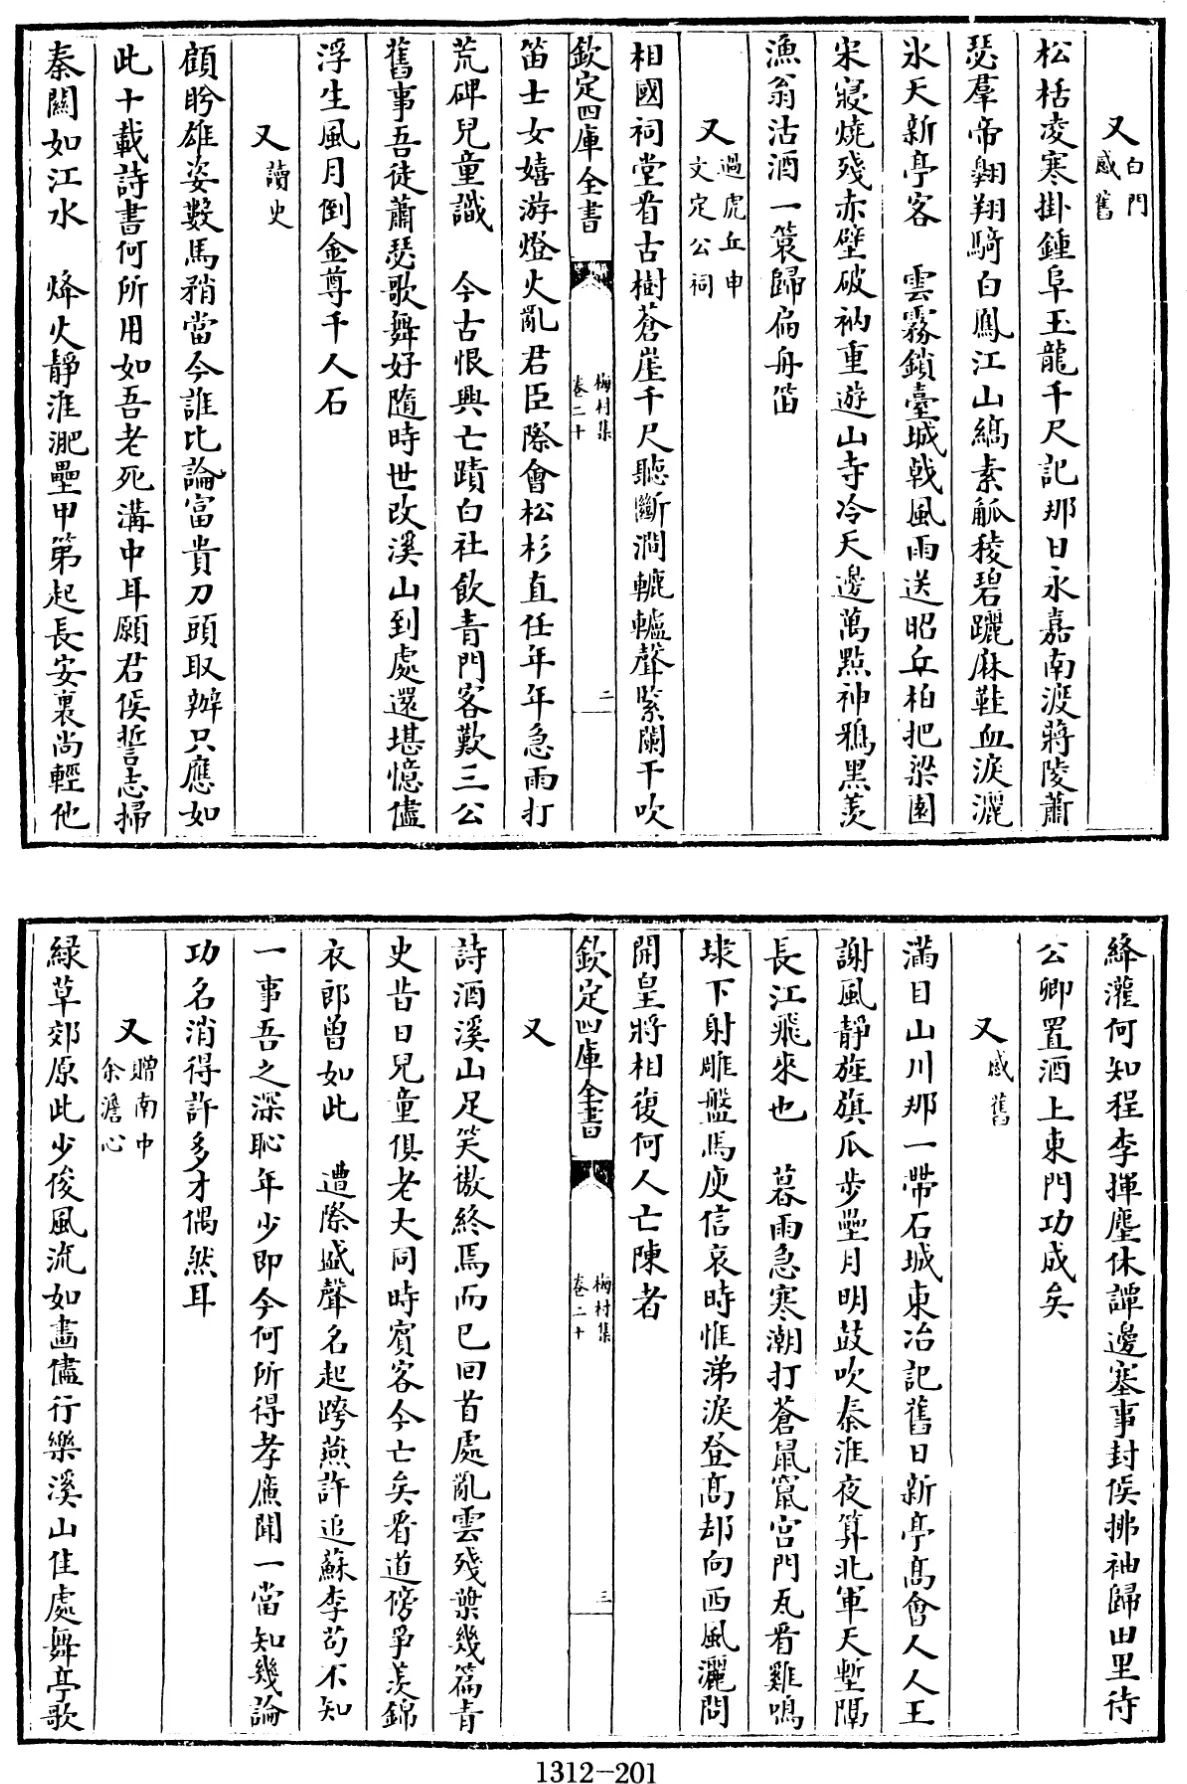 又白門感舊
松栝凌寒掛鍾阜玉龍千尺記那日永嘉南渡蔣陵蕭
瑟羣帝翱翔騎白鳳江山縞素觚稜碧躧麻鞋血淚灑
氷天新亭客　雲霧鎖臺城戟風雨送昭丘柏把梁園
宋寢燒殘赤壁破衲重遊山寺冷天邊萬點神鴉黑羨
漁翁沽酒一簑歸扁舟笛
又過虎丘申文定公祠
相國祠堂看古樹蒼崖千尺聽斷澗轆轤聲緊闌干吹
欽定四庫全書
梅村集
卷二十
二
笛士女嬉游燈火亂君臣際會松杉直任年年急雨打
荒碑兒童識　今古恨興亡蹟白社飲青門客歎三公
舊事吾徒蕭瑟歌舞好隨時世改溪山到處還堪憶儘
浮生風月倒金尊千人石
又讀史
顧盻雄姿數馬矟當今誰比論富貴刀頭取辦只應如
此十載詩書何所用如吾老死溝中耳願君侯誓志掃
秦關如江水　烽火靜淮淝壘甲第起長安裏尚輕他
絳灌何知程李揮麈休譚邊塞事封侯拂袖歸田里待
公卿置酒上東門功成矣
又感舊
滿目山川那一帶石城東冶記舊日新亭髙會人人王
謝風靜旌旗瓜步壘月明鼓吹秦淮夜算北軍天塹隔
長江飛來也　暮雨急寒潮打蒼鼠竄宫門瓦看雞鳴
埭下射雕盤馬庾信哀時惟涕淚登髙却向西風灑問
開皇將相復何人亡陳者
欽定四庫全書
梅村集
卷二十
三
又
詩酒溪山足笑傲終焉而已回首處亂雲殘葉幾篇青
史昔日兒童俱老大同時賓客今亡矣看道傍爭羡錦
衣郎曾如此　遭際盛聲名起跨燕許追蘇李苟不知
一事吾之深恥年少即今何所得孝廉聞一當知幾論
功名消得許多才偶然耳
又贈南中余澹心
緑草郊原此少俊風流如畵儘行樂溪山佳處舞亭歌
1312-201